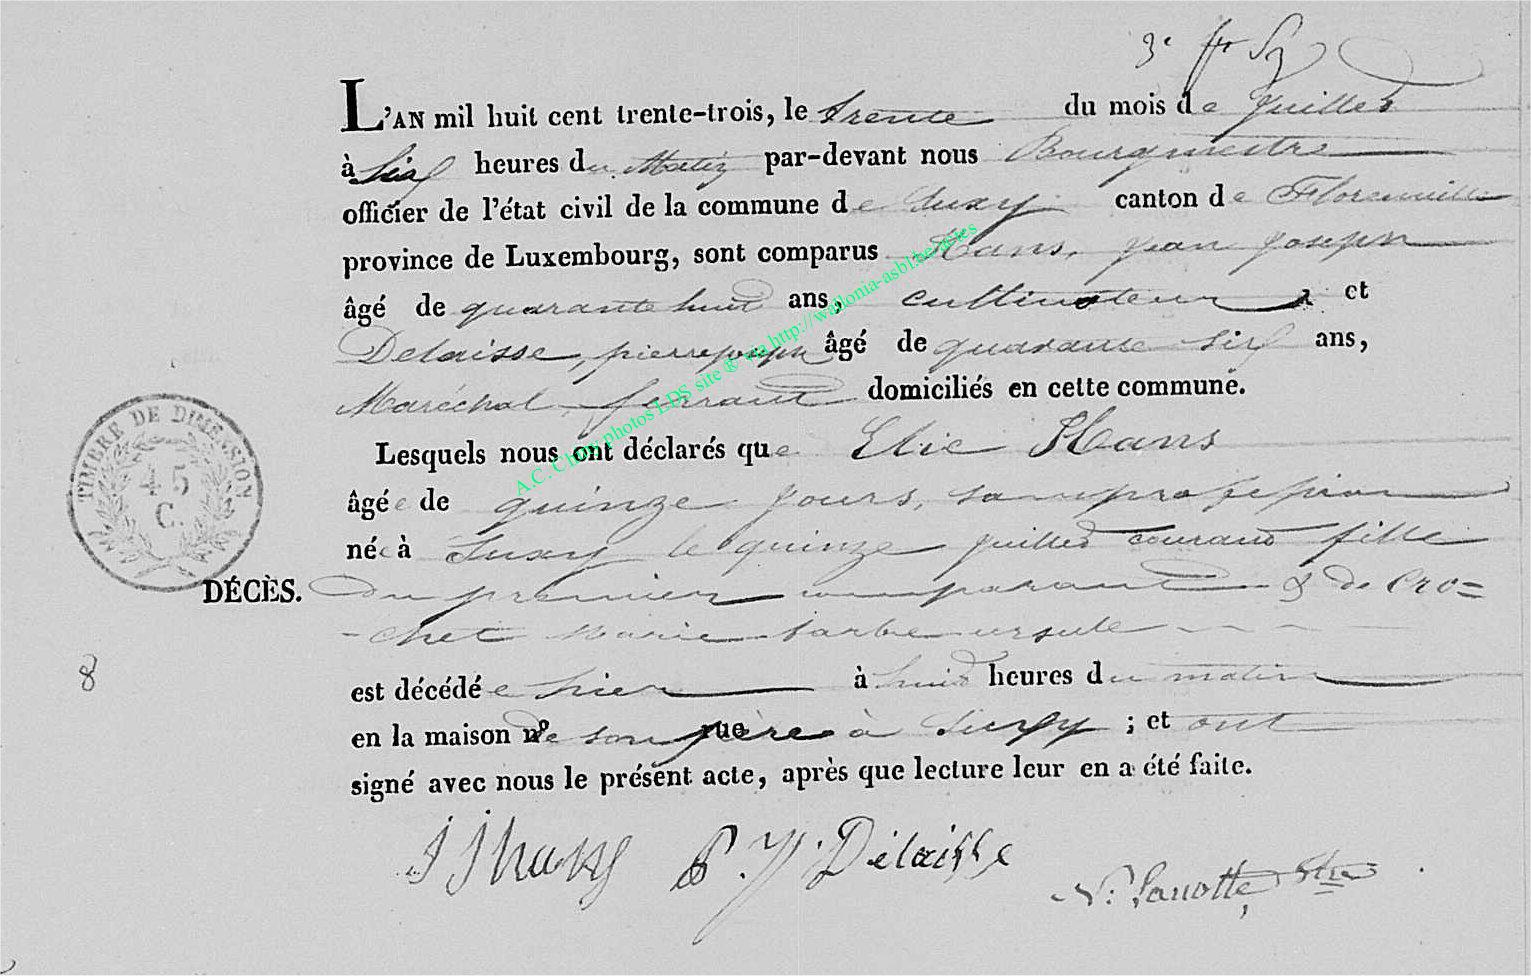 3e
L'AN mil huit cent trente-trois, le trente du mois de Juillet
à Six heures du Matin par-devant nous Bourgmestre
officier de l'état civil de la commune de Suxy canton de Florenville
province de Luxembourg, sont comparus Hans, jean joseph
âgé de quarante huit ans, cultivateur et
Delaisse, pierre joseph âgé de quarante six ans,
Maréchal ferrant domiciliés en cette commune.
Lesquels nous ont déclarés que Elie Hans
âgée de quinze jours, sans profession
née à Suxy le quinze juillet courant fille
Du premier comparant & de Cro=
-chet Marie barbe ursule
est décédée hier à huit heures du matin
en la maison nº de son rue père à Suxy ; et ont
signé avec nous le présent acte, après que lecture leur en a été faite.
DÉCÈS.
8
TIMBRE DE DIMENSION
45
C.
J J hans P. J. Delaisse
A.C. Chiny photos LDS site ® via http://wallonia-asbl.be/actes